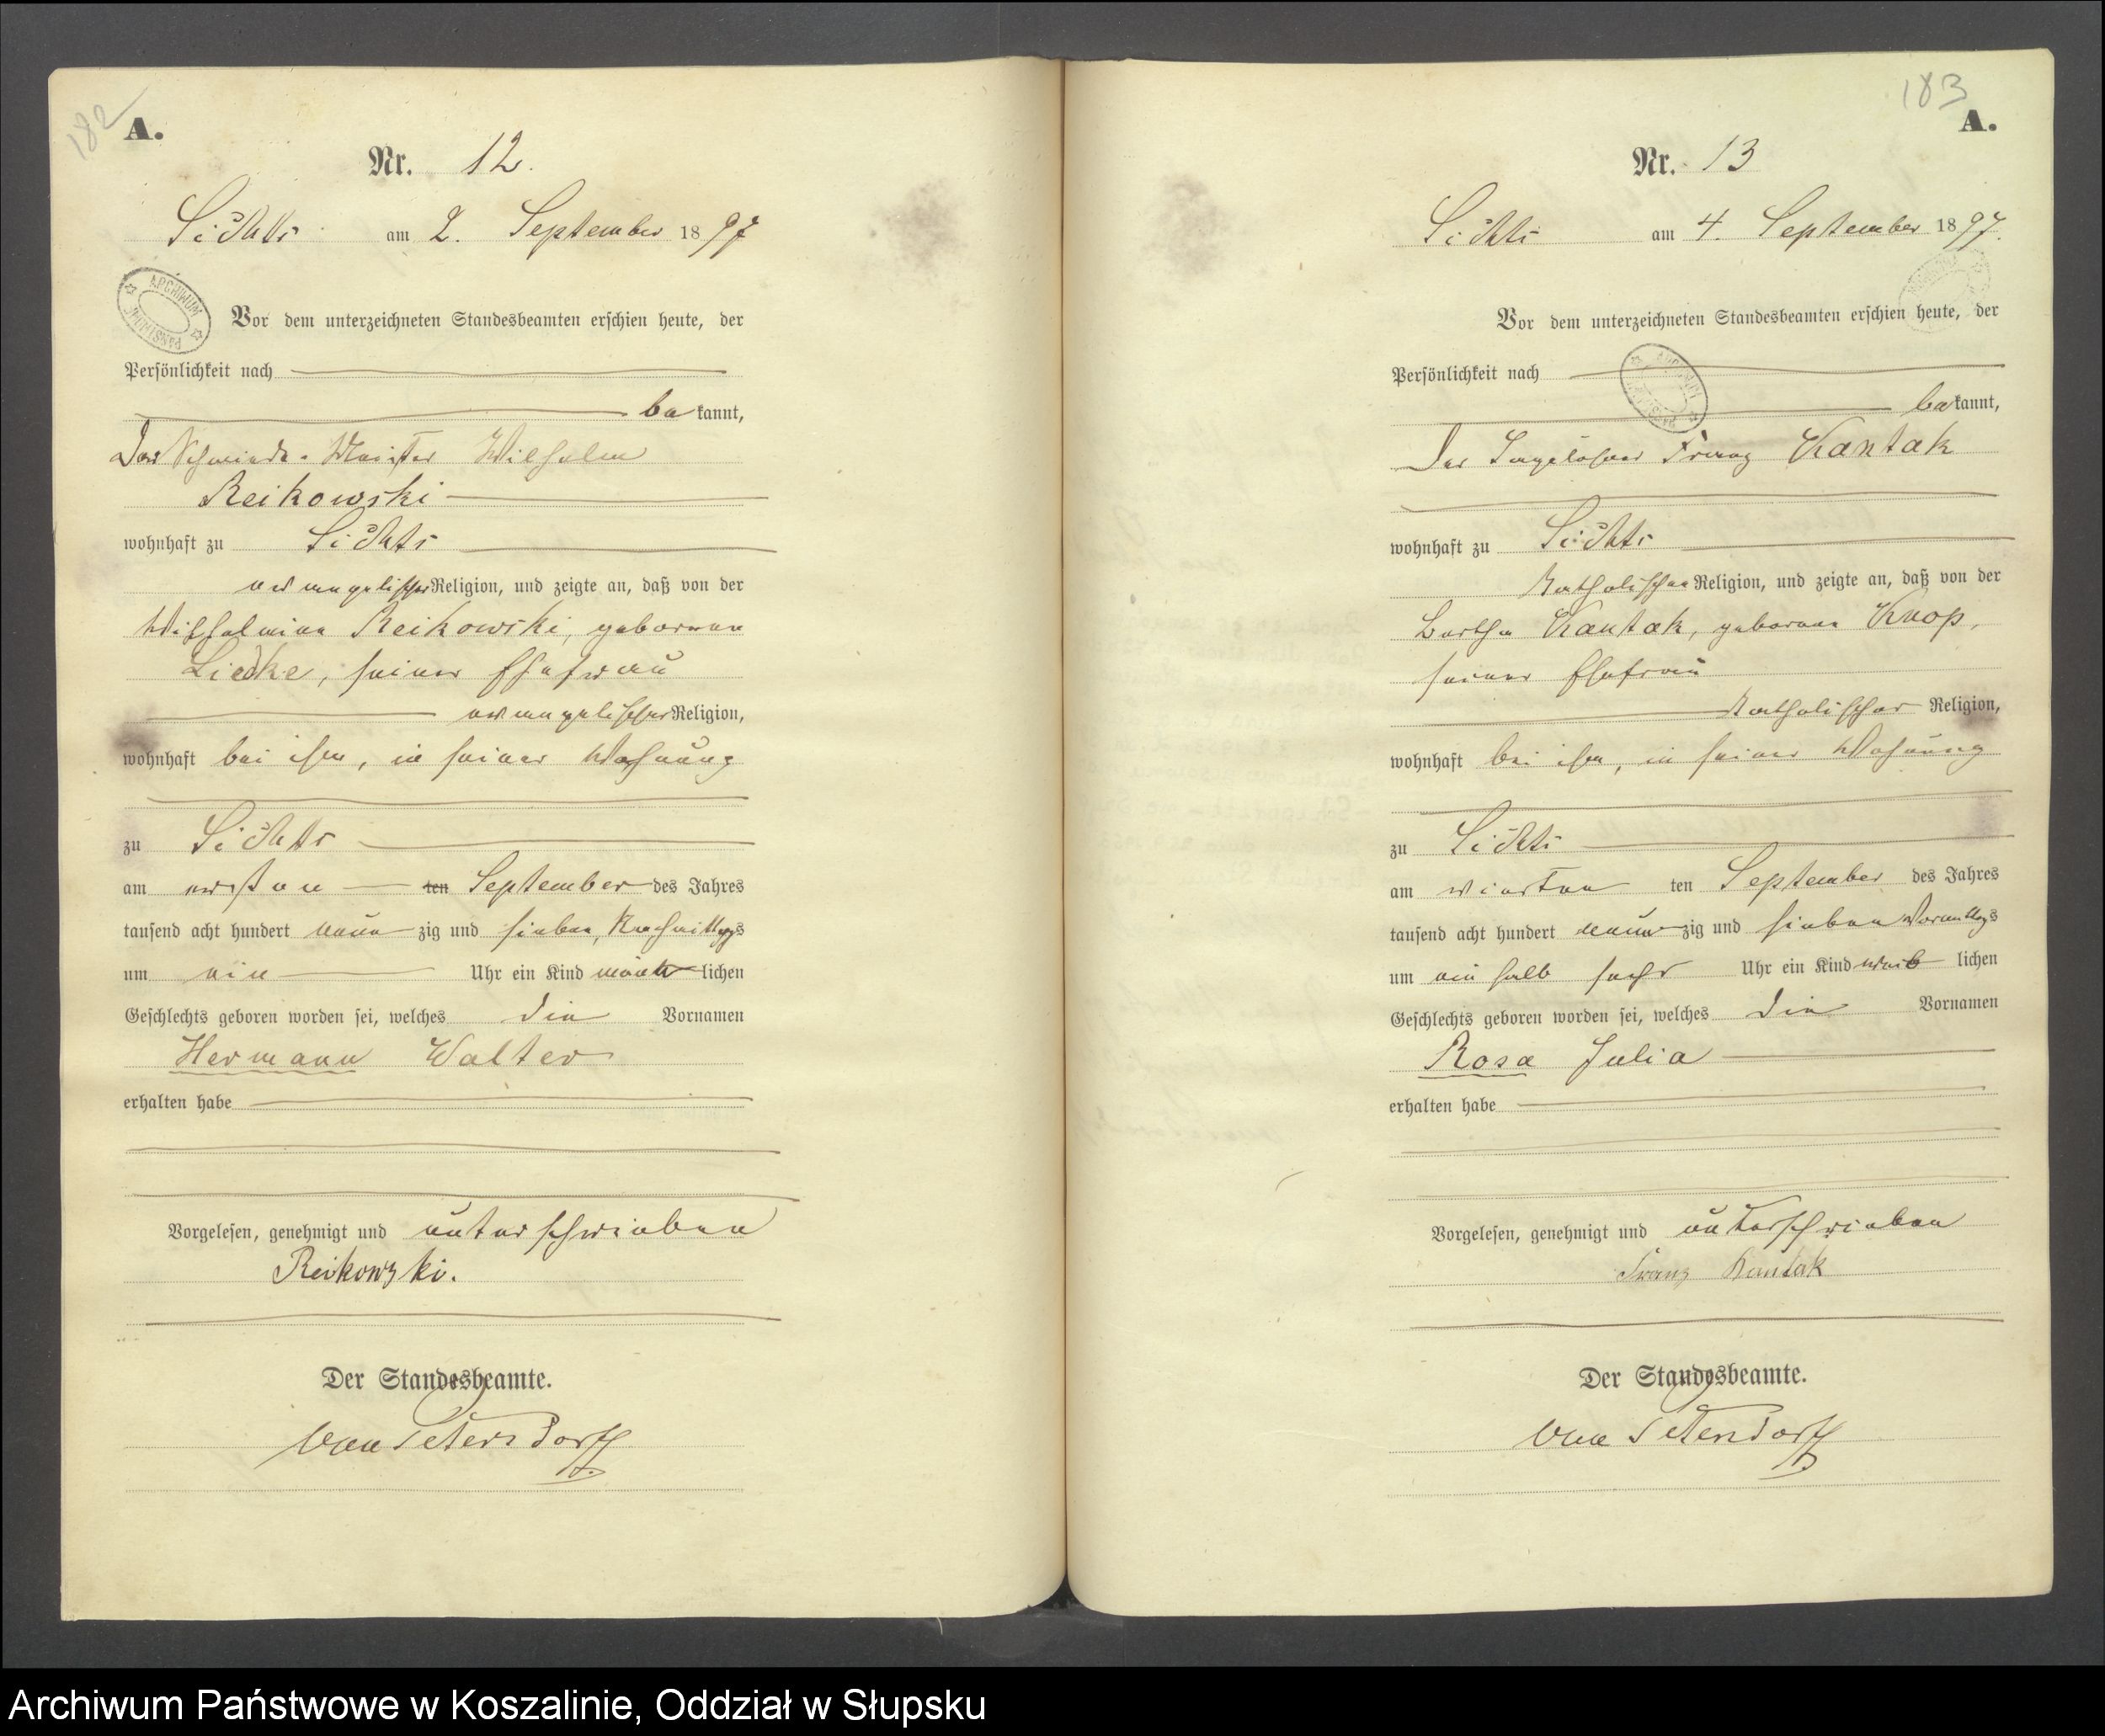 182
A.
Nr. 12.
Sichts am 2. September 1897
Vor dem unterzeichneten Standesbeamten erschien heute, der
Persönlichkeit nach
bekannt,
Der Schmiede-Meister Wilhelm
Reikowski
wohnhaft zu Sichts
evangelischer Religion, und zeigte an, daß von der
Wilhelmine Reikowski, geborenen
Liedke, seiner Ehefrau
evangelischer Religion,
wohnhaft bei ihm, in seiner Wohnung
zu Sichts
am ersten ten September des Jahres
tausend acht hundert neun zig und sieben, Nachmittags
um ein Uhr ein Kind männlichen
Geschlechts geboren worden sei, welches die Vornamen
Hermann Walter
erhalten habe
Vorgelesen, genehmigt und unterschrieben
Reikowski.
Der Standesbeamte.
von Petersdorff
183
A.
Nr. 13
Sichts am 4. September 1897.
Vor dem unterzeichneten Standesbeamten erschien heute, der
Persönlichkeit nach
bekannt,
Der Tagelöhner Franz Kantak
wohnhaft zu Sichts
katholischen Religion, und zeigte an, daß von der
Bertha Kantak, geborene Knop,
seiner Ehefrau
katholischer Religion,
wohnhaft bei ihm, in seiner Wohnung
zu Sichts
am vierten ten September des Jahres
tausend acht hundert neun zig und sieben Vormittags
um ein halb sechs Uhr ein Kind weiblichen
Geschlechts geboren worden sei, welches die Vornamen
Rosa Julia
erhalten habe
Vorgelesen, genehmigt und unterschrieben
Franz Kantak
Der Standesbeamte.
von Petersdorff
Archiwum Państwowe w Koszalinie, Oddział w Słupsku